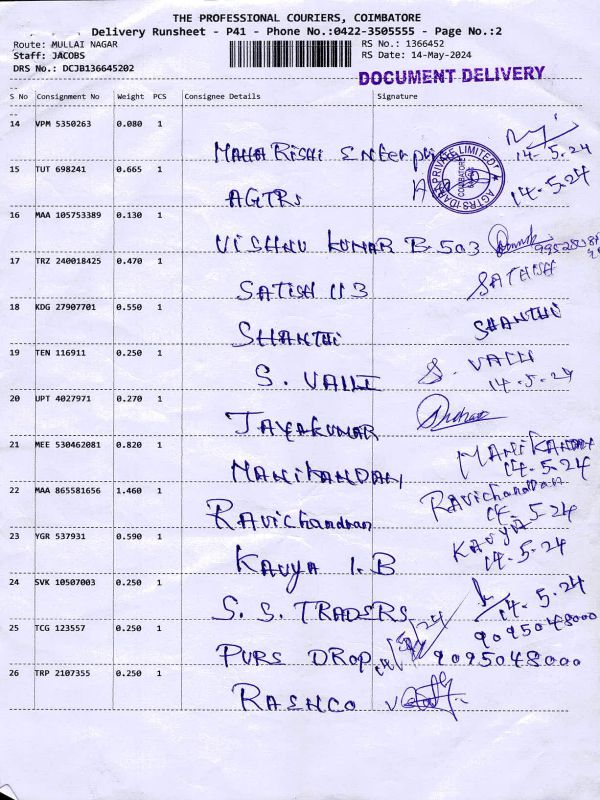 THE PROFESSIONAL COURIERS, COIMBATORE
Delivery Runsheet - P41 - Phone No.:0422-3505555 - Page No.:2
Route: MULLAI NAGAR
Staff: JACOBS
DRS No.: DCJB136645202
RS No.: 1366452
RS Date: 14-May-2024
DOCUMENT DELIVERY
S No Consignment No Weight PCS Consignee Details Signature
14 VPM 5350263 0.080 1
MAHA RISHI Enterpri
14.5.24
15 TUT 698241 0.665 1
AGTRS
14.5.24
AGTRS IDAAA PRIVATE LIMITED
COIMBATORE
16 MAA 105753389 0.130 1
VISHNU KUMAR B 503
17 TRZ 240018425 0.470 1
SATISH 113 SATHISH
18 KDG 27907701 0.550 1
SHANTHI SHANTHI
19 TEN 116911 0.250 1
S. VALLI S. VALLI
14.5.24
20 UPT 4027971 0.270 1
JAYAKUMAR
21 MEE 530462081 0.820 1
MANIKANDAN MANIKANDAN
14.5.24
22 MAA 865581656 1.460 1
Ravichandran Ravichandran
14.5.24
23 YGR 537931 0.590 1
KAVYA I.B KAVYA
14.5.24
24 SVK 10507003 0.250 1
S.S. TRADERS 14.5.24
9095048000
25 TCG 123557 0.250 1
PURS DROP 9095048000
26 TRP 2107355 0.250 1
RASHCO